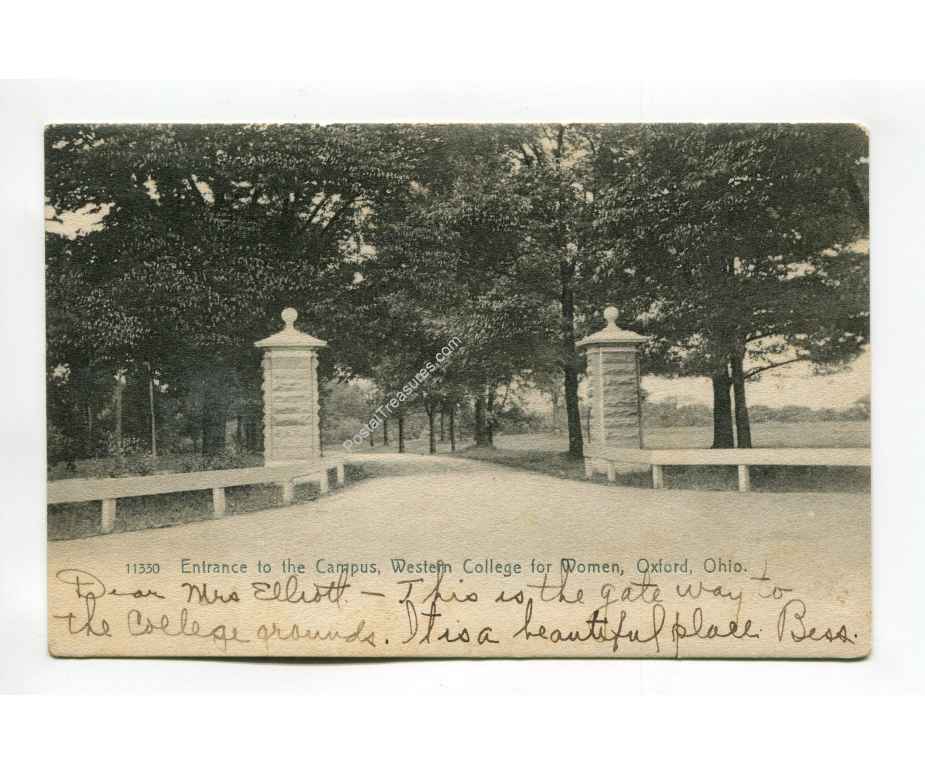 PostalTreasures.com
11330 Entrance to the Campus, Western College for Women, Oxford, Ohio.
Dear Mrs Elliott. – This is the gate way to
the College grounds. It is a beautiful place. Bess.